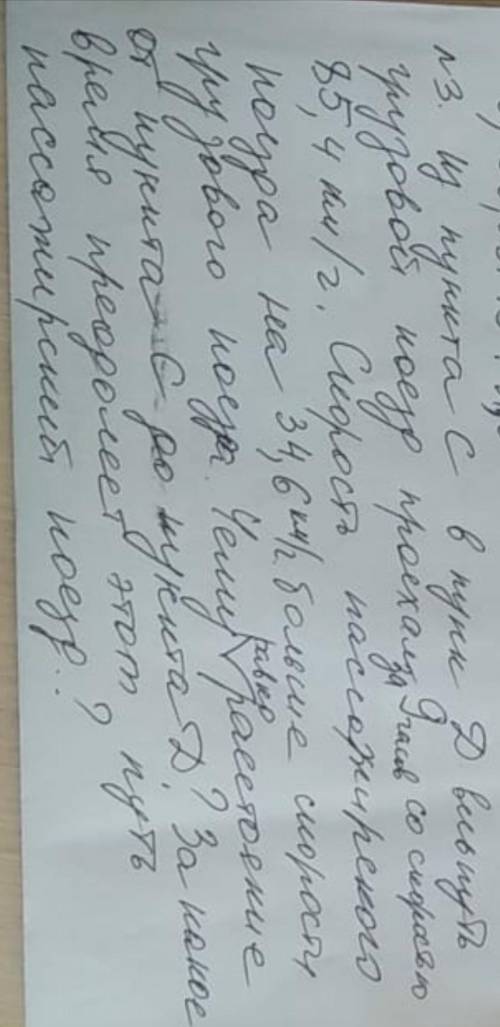 №3. Из пункта С в пунк Д весь путь
грузовой поезд проехал за 9 часов со скоростью
85,4 км/г. Скорость пассажирского
поезда на 34,6 км/г. больше скорости
грузового поезда. Чему равно расстояние
от пункта С до пункта Д? За какое
время преодолеет этот путь
пассажирский поезд.?